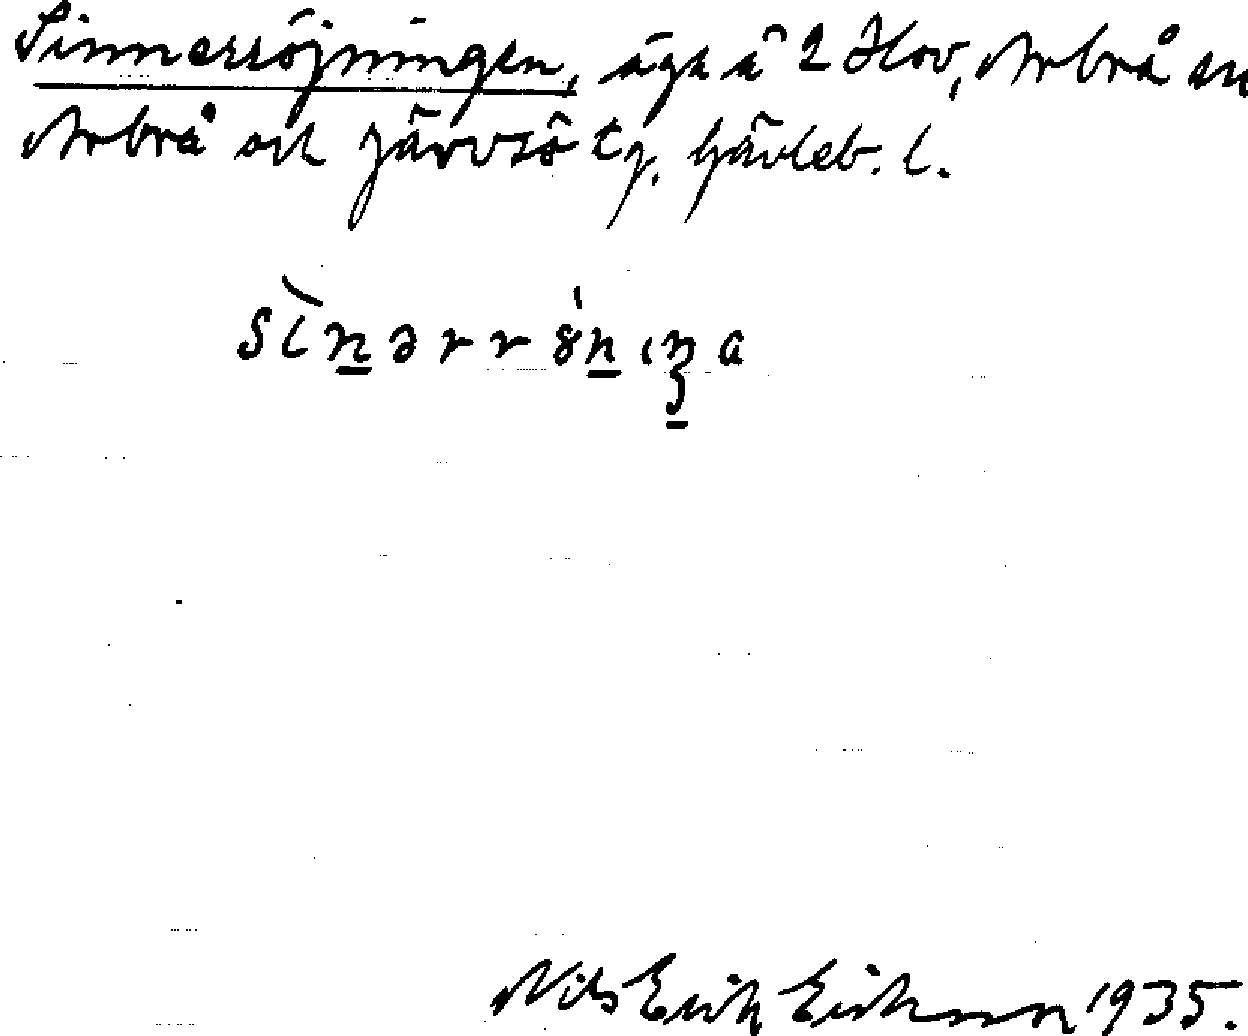 Sinnersröjningen, äga å 2 Hov, Arbrå sn
Arbrå och Järvsö tg. Gävleb. l.
sìnərrönıŋa
Nils Erik Erikson 1935.